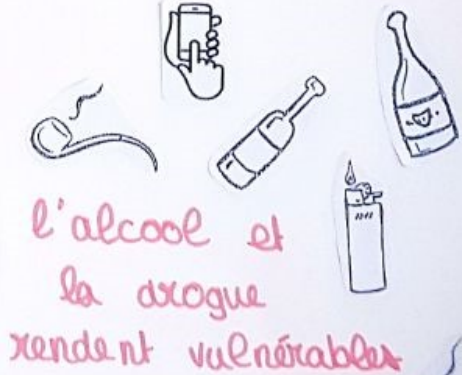 l'alcool et
la drogue
rendent vulnérables